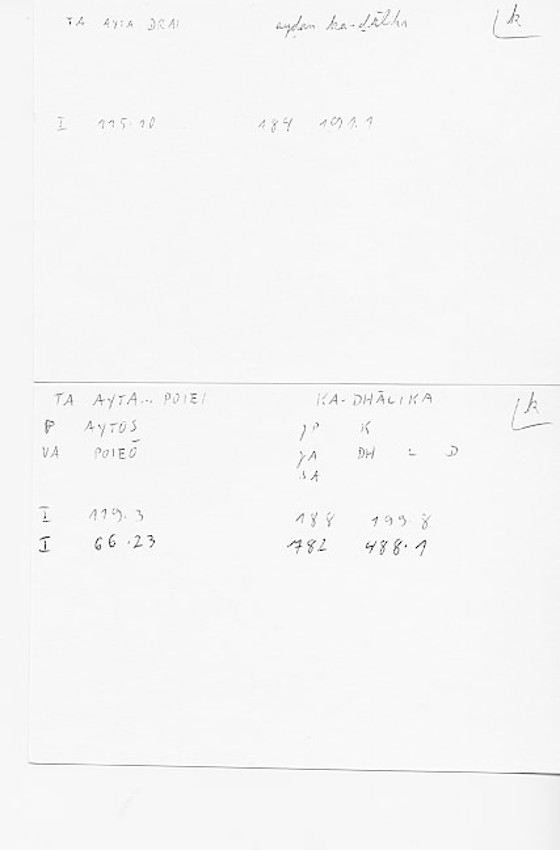 TA AYTA DRAI ayḍan ka-ḏālika k
I 115.10 184 191.1
TA AYTA... POIEI KA-DHĀLIKA k
P AYTOS K
VA POIEŌ DH L D
I 119.3 188 199.8
I 66.23 782 488.1